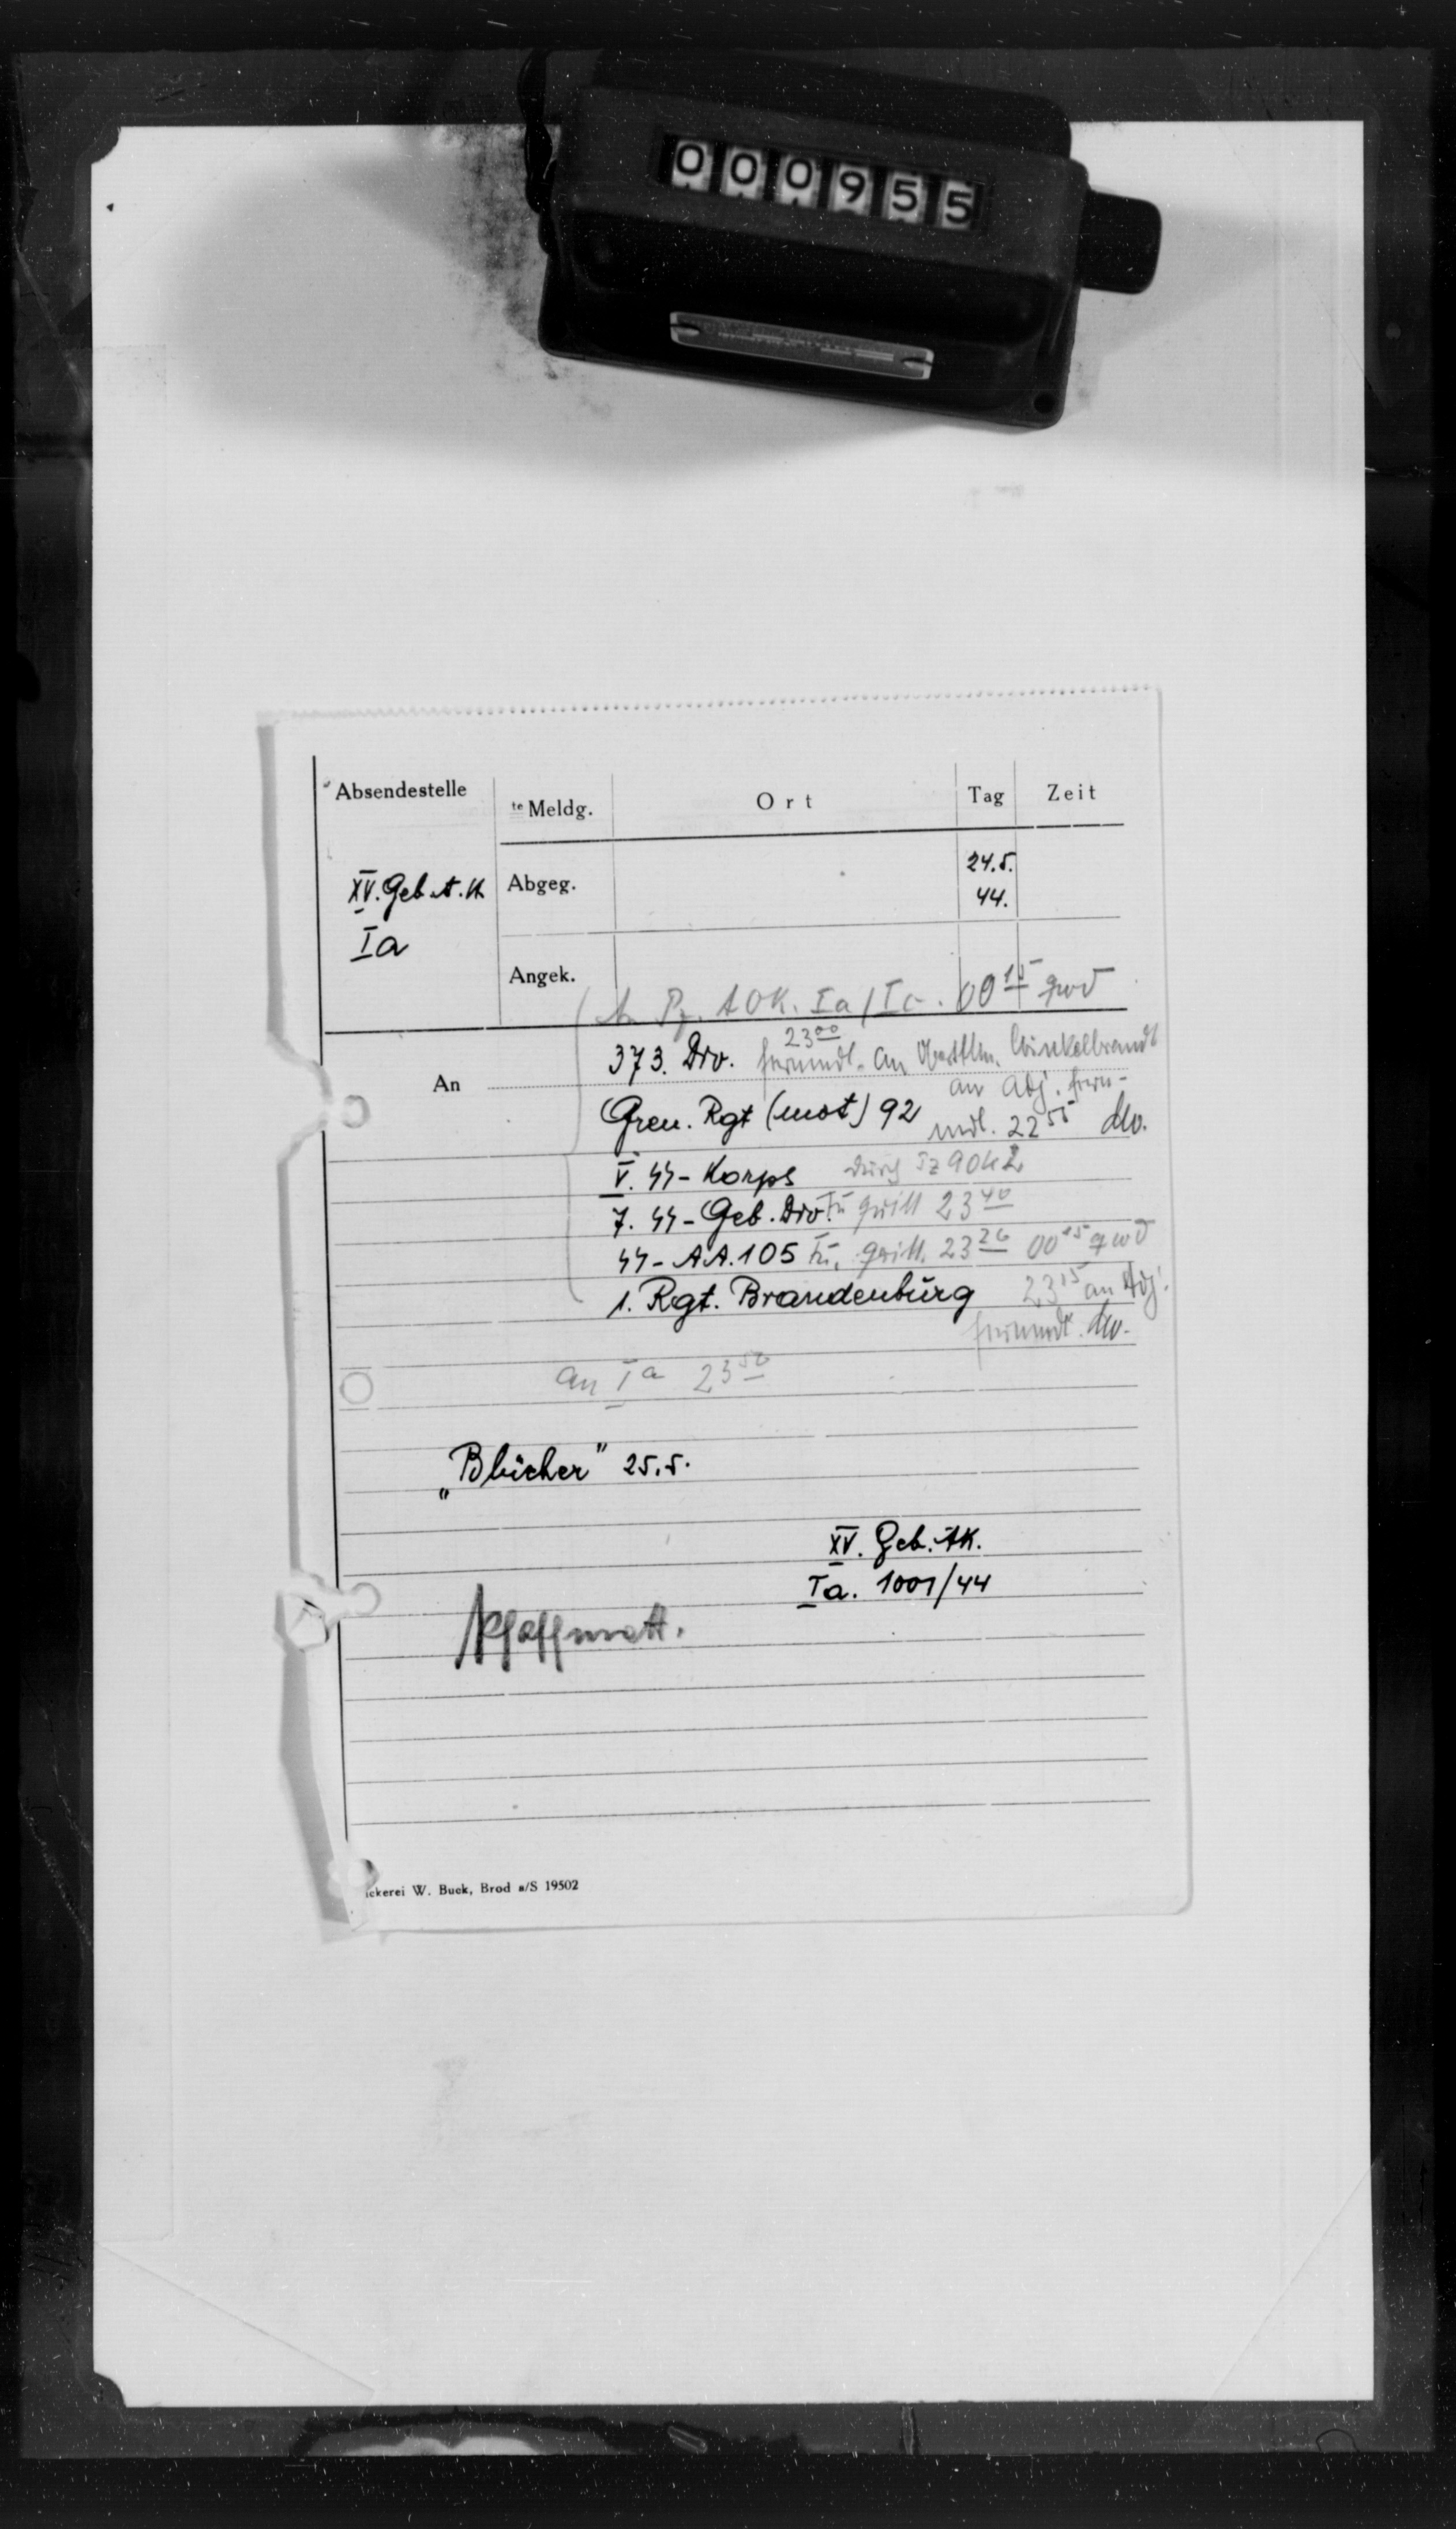 000955
Absendestelle
te Meldg.
Ort
Tag
Zeit
XV. Geb. A.K.
Ia
Abgeg.
24.5.
44.
Angek.
Pz. AOK. Ia/Ic. 00 15
An
373. Div. 23 00 fernmdl. an Winkelbrandt
an Adj. fern-
Gren. Rgt (mot) 92 mdl. 22 55
V. SS-Korps durch Pz AOK 2
7. SS-Geb. Div. 23 40
SS-AA. 105 23 26 00 15
1. Rgt. Brandenburg 23 15 an Adj.
fernmdl.
an Ia 23 50
„Blücher" 25.5.
XV. Geb. AK.
Ia. 1001/44
ckerei W. Buck, Brod a/S 19502